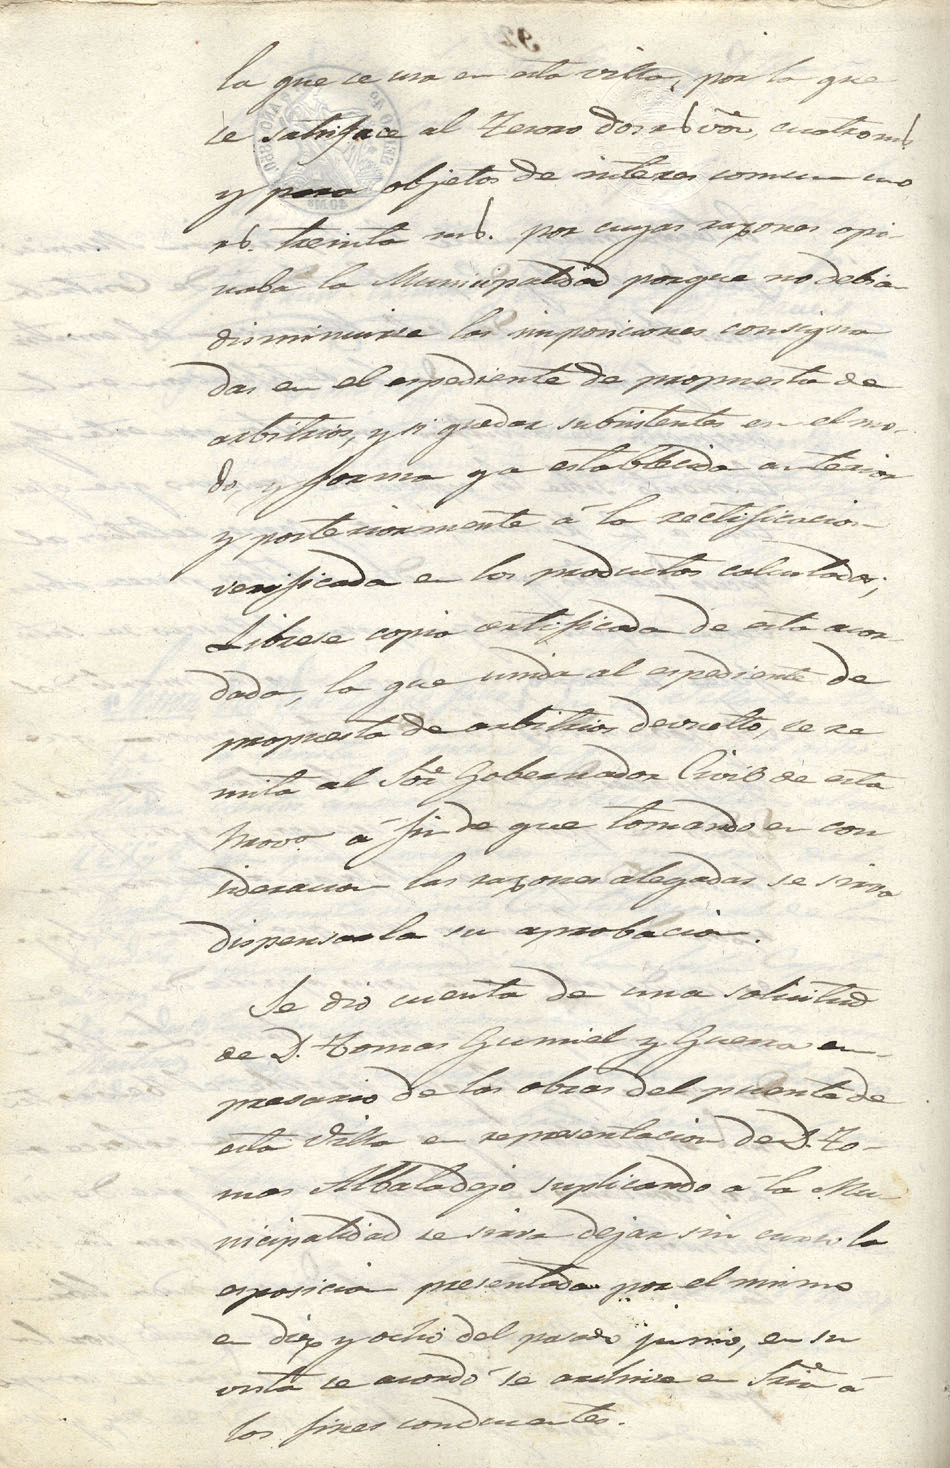 la que se usa en esta villa, por la que
se satisface al Tesoro dos rs. von, cuatro ms.
y para objetos de interes comun uno
rs. treinta ms. por cuyas razones opi-
naba la Municipalidad porque no debia
disminuirse las imposiciones consigna
das en el espediente de propuesta de
arbitrios, y si quedar subsistentes en el mo-
do, y forma ya establecida anterior
y posteriormente á la rectificacion
verificada en los productos calculados;
Librese copia certificada de esta acor
dada, la que unida al espediente de
propuesta de arbitrios devuelto, se re
mita al Sor. Gobernador Civil de esta
Prova. á fin de que tomando en con
sideracion las razones alegadas se sirva
dispensarla su aprobacion.
Se dio cuenta de una solicitud
de D. Tomas Gumiel y Guerra em-
presario de las obras del puente de
esta Villa en representacion de D. To-
mas Albaladejo suplicando á la Mu-
nicipalidad se sirva dejar sin curso la
esposicion presentada por el mismo
en diez y ocho del pasado junio, en su
vista se acordó se archive en Sria. á
los fines conducentes.